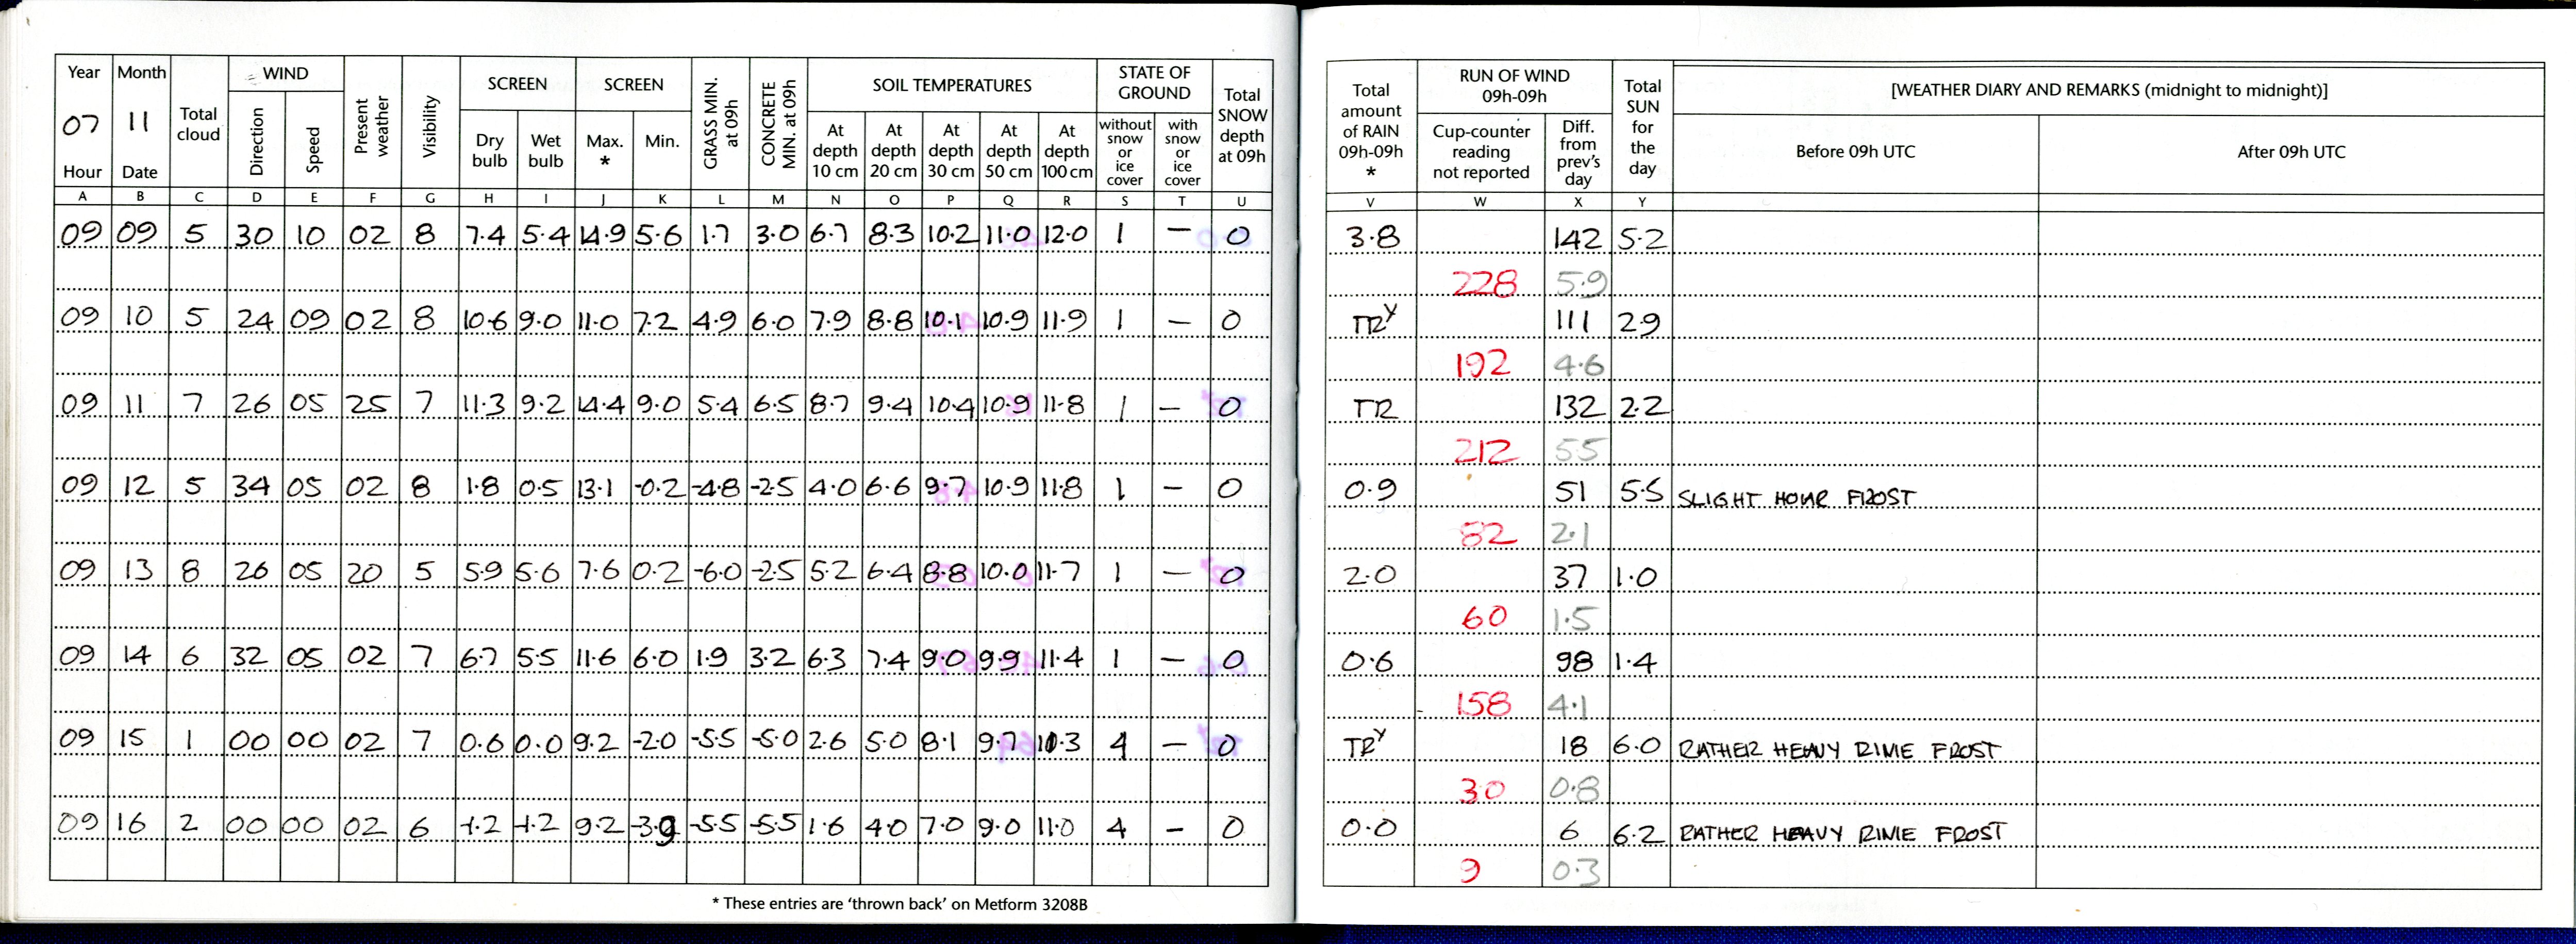 Year Month Total cloud WIND Present weather Visibility SCREEN SCREEN GRASS MIN. at 09h CONCRETE MIN. at 09h SOIL TEMPERATURES STATE OF GROUND Total SNOW depth at 09h Total amount of RAIN 09h-09h * RUN OF WIND 09h-09h Total SUN for the day [WEATHER DIARY AND REMARKS (midnight to midnight)]
07 11 Direction Speed Dry bulb Wet bulb Max. * Min. At depth 10 cm At depth 20 cm At depth 30 cm At depth 50 cm At depth 100 cm without snow or ice cover with snow or ice cover Cup-counter reading not reported Diff. from prev's day Before 09h UTC After 09h UTC
Hour Date
A B C D E F G H I J K L M N O P Q R S T U V W X Y
09 09 5 30 10 02 8 7.4 5.4 14.9 5.6 1.7 3.0 6.7 8.3 10.2 11.0 12.0 1 — 0 3.8 142 5.2
228 5.9
09 10 5 24 09 02 8 10.6 9.0 11.0 7.2 4.9 6.0 7.9 8.8 10.1 10.9 11.9 1 — 0 TRY 111 2.9
192 4.6
09 11 7 26 05 25 7 11.3 9.2 14.4 9.0 5.4 6.5 8.7 9.4 10.4 10.9 11.8 1 — 0 TR 132 2.2
212 5.5
09 12 5 34 05 02 8 1.8 0.5 13.1 -0.2 -4.8 -2.5 4.0 6.6 9.7 10.9 11.8 1 — 0 0.9 51 5.5 SLIGHT HOAR FROST
82 2.1
09 13 8 26 05 20 5 5.9 5.6 7.6 0.2 -6.0 -2.5 5.2 6.4 8.8 10.0 11.7 1 — 0 2.0 37 1.0
60 1.5
09 14 6 32 05 02 7 6.7 5.5 11.6 6.0 1.9 3.2 6.3 7.4 9.0 9.9 11.4 1 — 0 0.6 98 1.4
158 4.1
09 15 1 00 00 02 7 0.6 0.0 9.2 -2.0 -5.5 -5.0 2.6 5.0 8.1 9.7 11.3 4 — 0 TRY 18 6.0 RATHER HEAVY RIME FROST
30 0.8
09 16 2 00 00 02 6 -1.2 -1.2 9.2 -3.9 -5.5 -5.5 1.6 4.0 7.0 9.0 11.0 4 — 0 0.0 6 6.2 RATHER HEAVY RIME FROST
9 0.3
* These entries are 'thrown back' on Metform 3208B